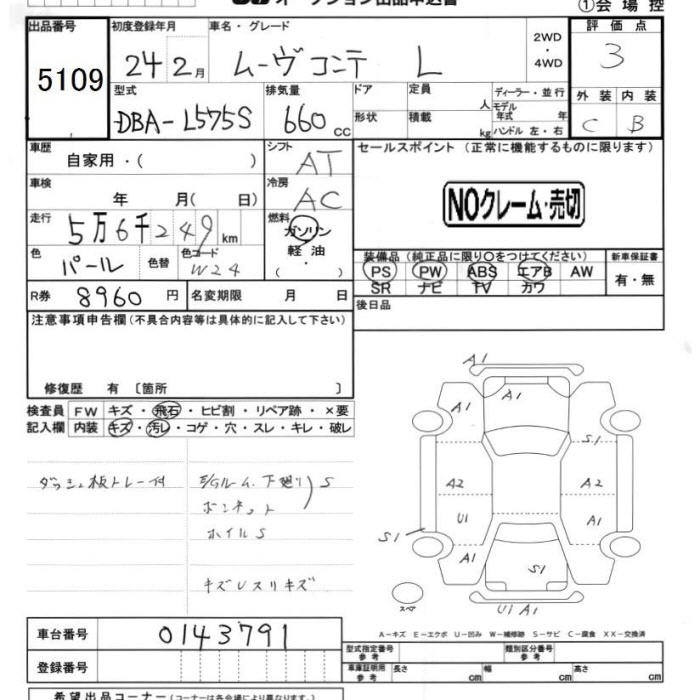 オークション出品申込書
①会場控
出品番号 初度登録年月 車名・グレード 2WD・4WD 評価点
5109 24 2月 ムーヴコンテ L 3
型式 排気量 ドア 定員 人 ディーラー・並行 外装 内装
DBA-L575S 660cc 形状 積載 kg モデル年式 年 ハンドル 左・右 C B
車歴 自家用・( ) シフト AT セールスポイント (正常に機能するものに限ります)
車検 年 月(日) 冷房 AC
NOクレーム・売切
走行 5万6千249km 燃料 ガソリン 軽油 ・( )
色 パール 色替 色コード W24
装備品 (純正品に限り○をつけてください) 新車保証書
PS PW ABS エアB AW 有・無
SR ナビ TV カワ
R券 8960円 名変期限 月 日 後日品
注意事項申告欄 (不具合内容等は具体的に記入して下さい)
修復歴 有 〔箇所 〕
検査員 FW キズ・飛石・ヒビ割・リペア跡・×要
記入欄 内装 キズ・汚レ・コゲ・穴・スレ・キレ・破レ
ダッシュ板トレー付 E/Gルーム、下廻り S
ボンネット
ホイルS
キズUスリキズ
A1
A1 A1
S1
A2 A2
U1 A1
S1
A1 S1
スペア
U1 A1
A-キズ E-エクボ U-凹み W-補修跡 S-サビ C-腐食 XX-交換済
車台番号 0143791
型式指定番号 参考 類別区分番号 参考
登録番号
車庫証明用 参考 長さ cm 幅 cm 高さ cm
希望出品コーナー (コーナーは各会場により異なります)